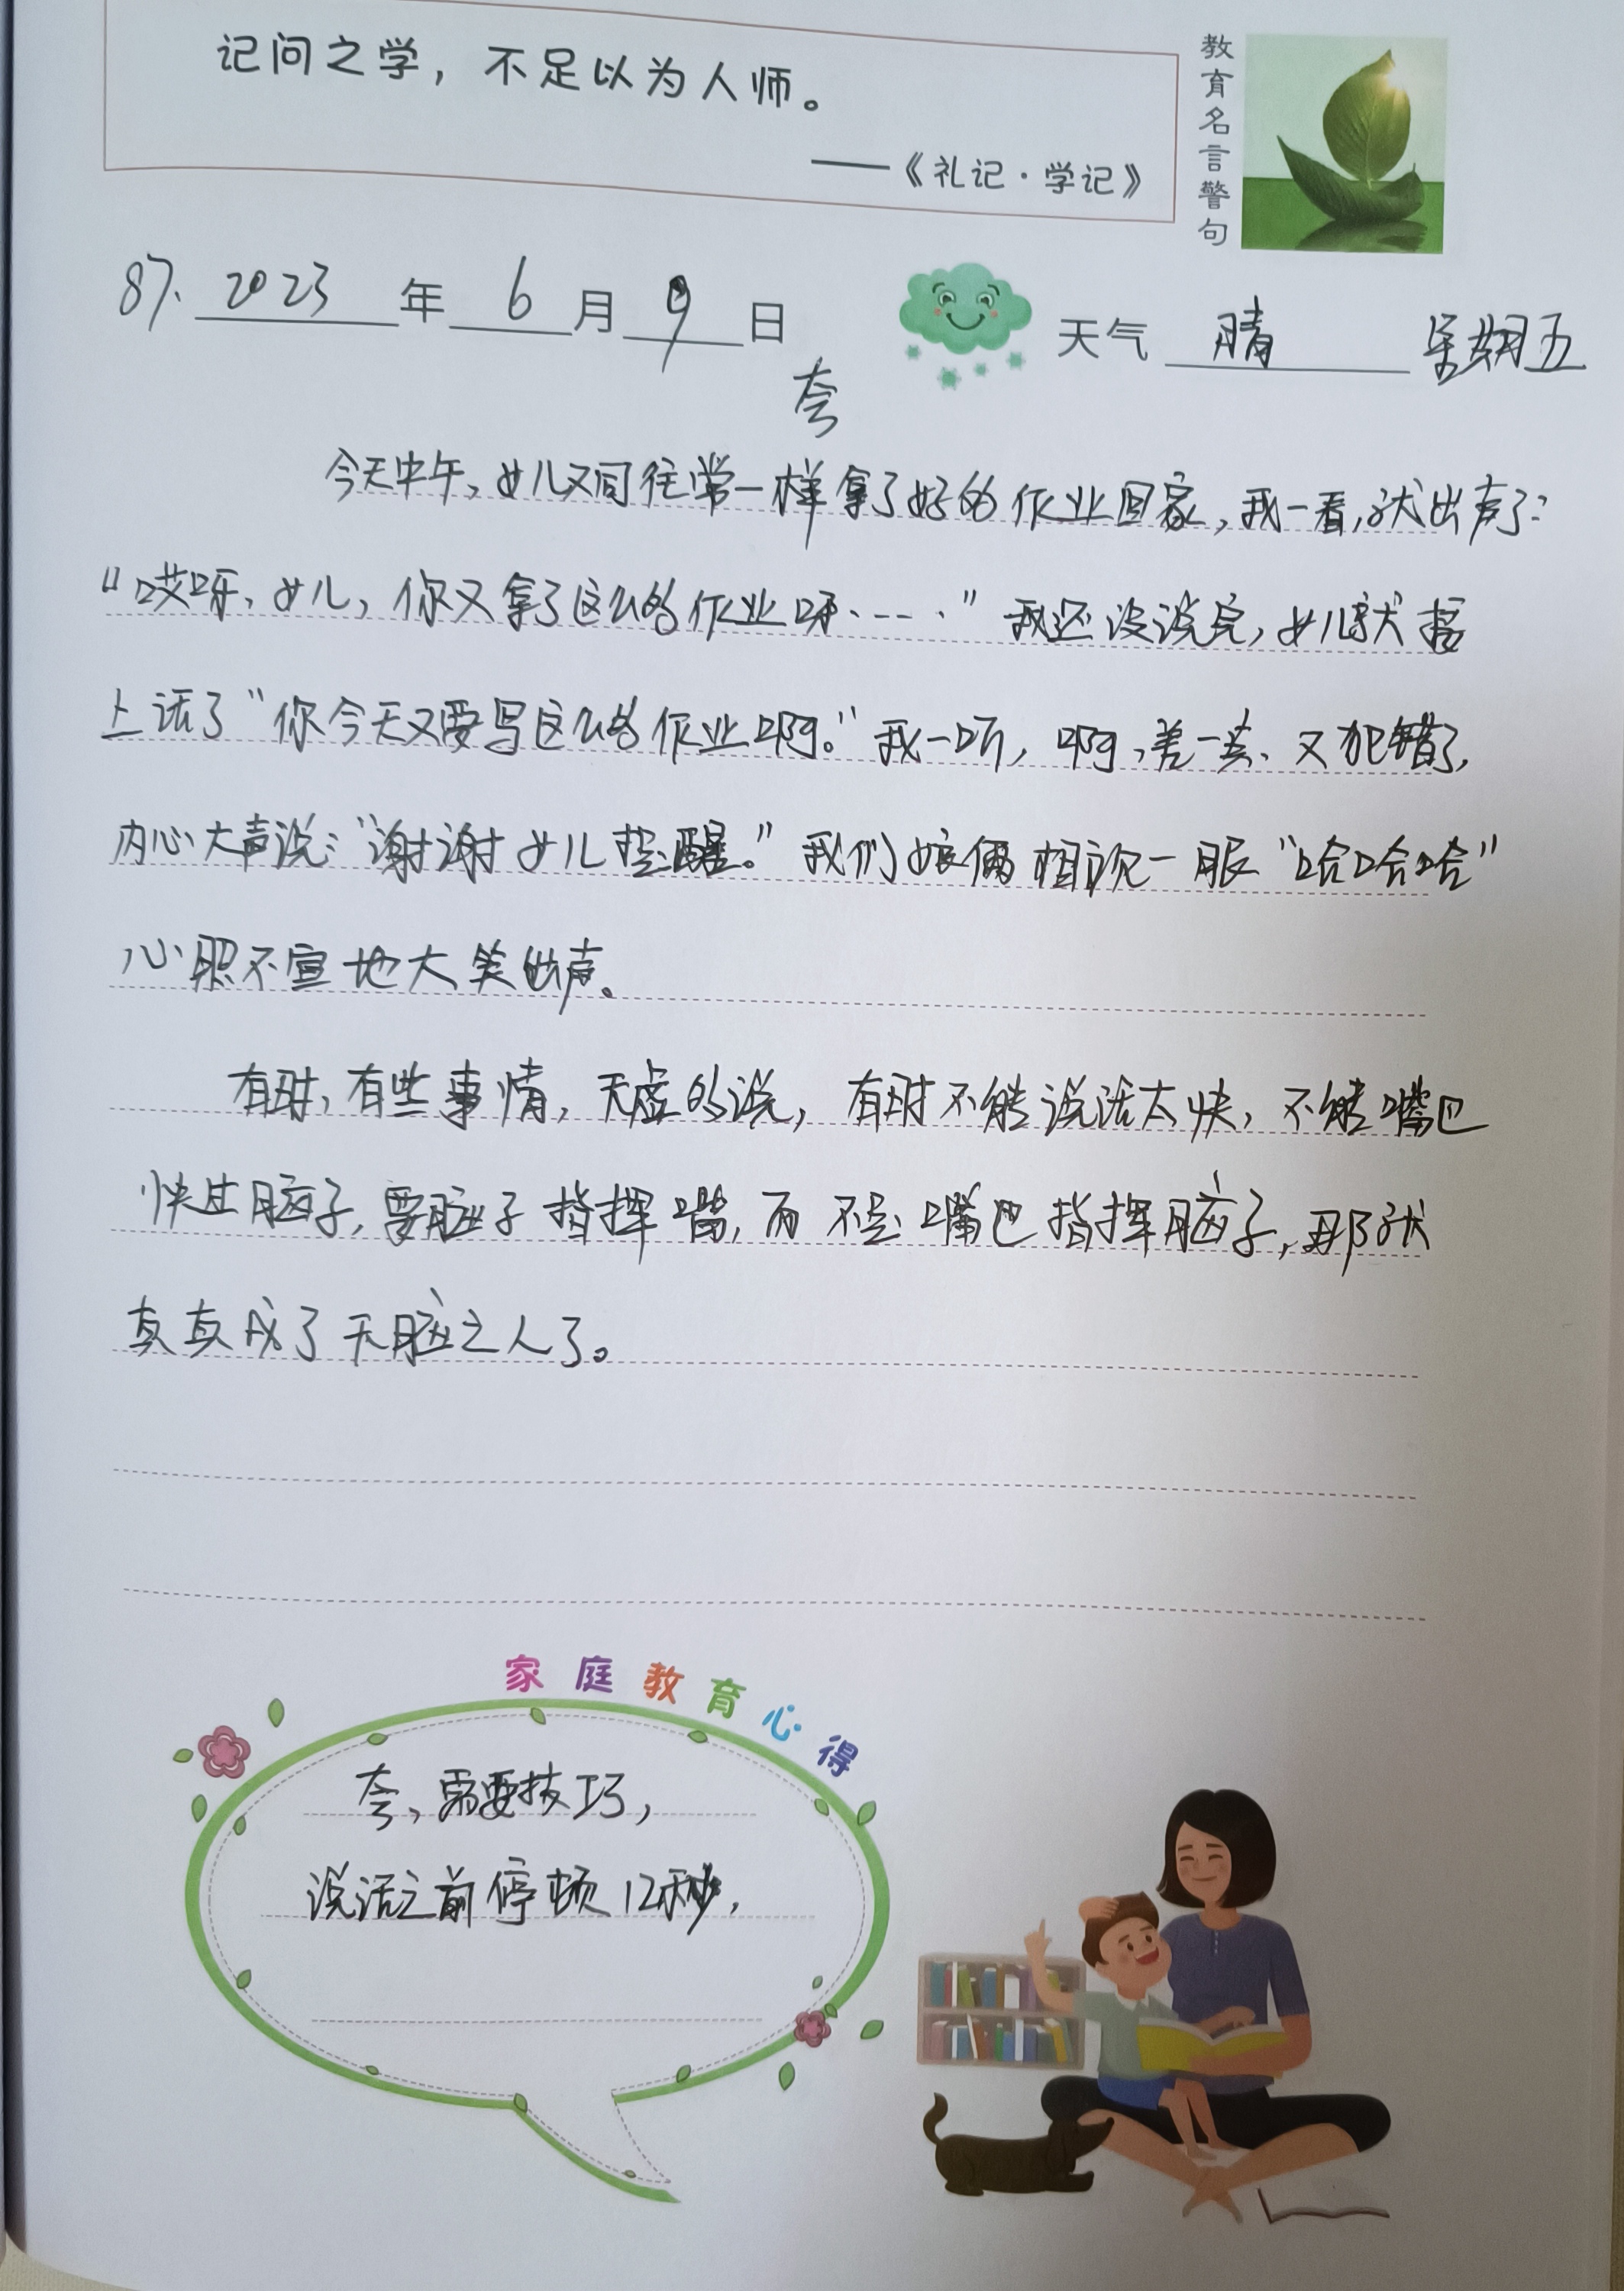 记问之学，不足以为人师。
——《礼记·学记》
教育名言警句
87. 2023年6月9日 天气 晴 星期五
夸
今天中午，女儿又同往常一样拿了好的作业回家，我一看，就出声了：
“哎呀，女儿，你又拿了这么的作业呀……”我还没说完，女儿就接
上话了“你今天又要写这么的作业啊。”我一听，啊，差一点、又犯错了，
内心大声说：“谢谢女儿提醒。”我们娘俩相视一眼“哈哈哈”
心照不宣地大笑出声。
有时，有些事情，无虚的说，有时不能说话太快，不能嘴巴
快过脑子，要脑子指挥嘴，而不是嘴巴指挥脑子，那就
真真成了无脑之人了。
家庭教育心得
夸，需要技巧，
说话之前停顿12秒，